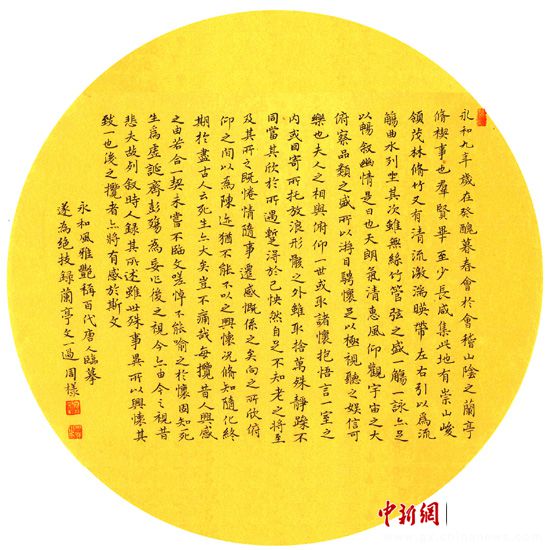 永和九年歲在癸醜暮春會於會稽山陰之蘭亭
脩禊事也羣賢畢至少長咸集此地有崇山峻
領茂林脩竹又有清流激湍暎帶左右引以爲流
觴曲水列坐其次雖無絲竹管弦之盛一觴一詠亦足
以暢敘幽情是日也天朗氣清惠風仰觀宇宙之大
俯察品類之盛所以游目騁懷足以極視聽之娛信可
樂也夫人之相與俯仰一世或取諸懷抱悟言一室之
內或因寄所托放浪形骸之外雖取捨萬殊靜躁不
同當其欣於所遇蹔得於己怏然自足不知老之將至
及其所之既惓情隨事遷感慨係之矣向之所欣俯
仰之間以爲陳迹猶不能不以之興懷況脩短隨化終
期於盡古人云死生亦大矣豈不痛哉每攬昔人興感
之由若合一契未嘗不臨文嗟悼不能喻之於懷固知死
生爲虛誕齊彭殤爲妄作後之視今亦由今之視昔
悲夫故列敘時人錄其所述雖世殊事異所以興懷其
致一也後之攬者亦將有感於斯文
永和風雅艷稱百代唐人臨摹
遂爲絕技錄蘭亭文一過 周樣
中新網